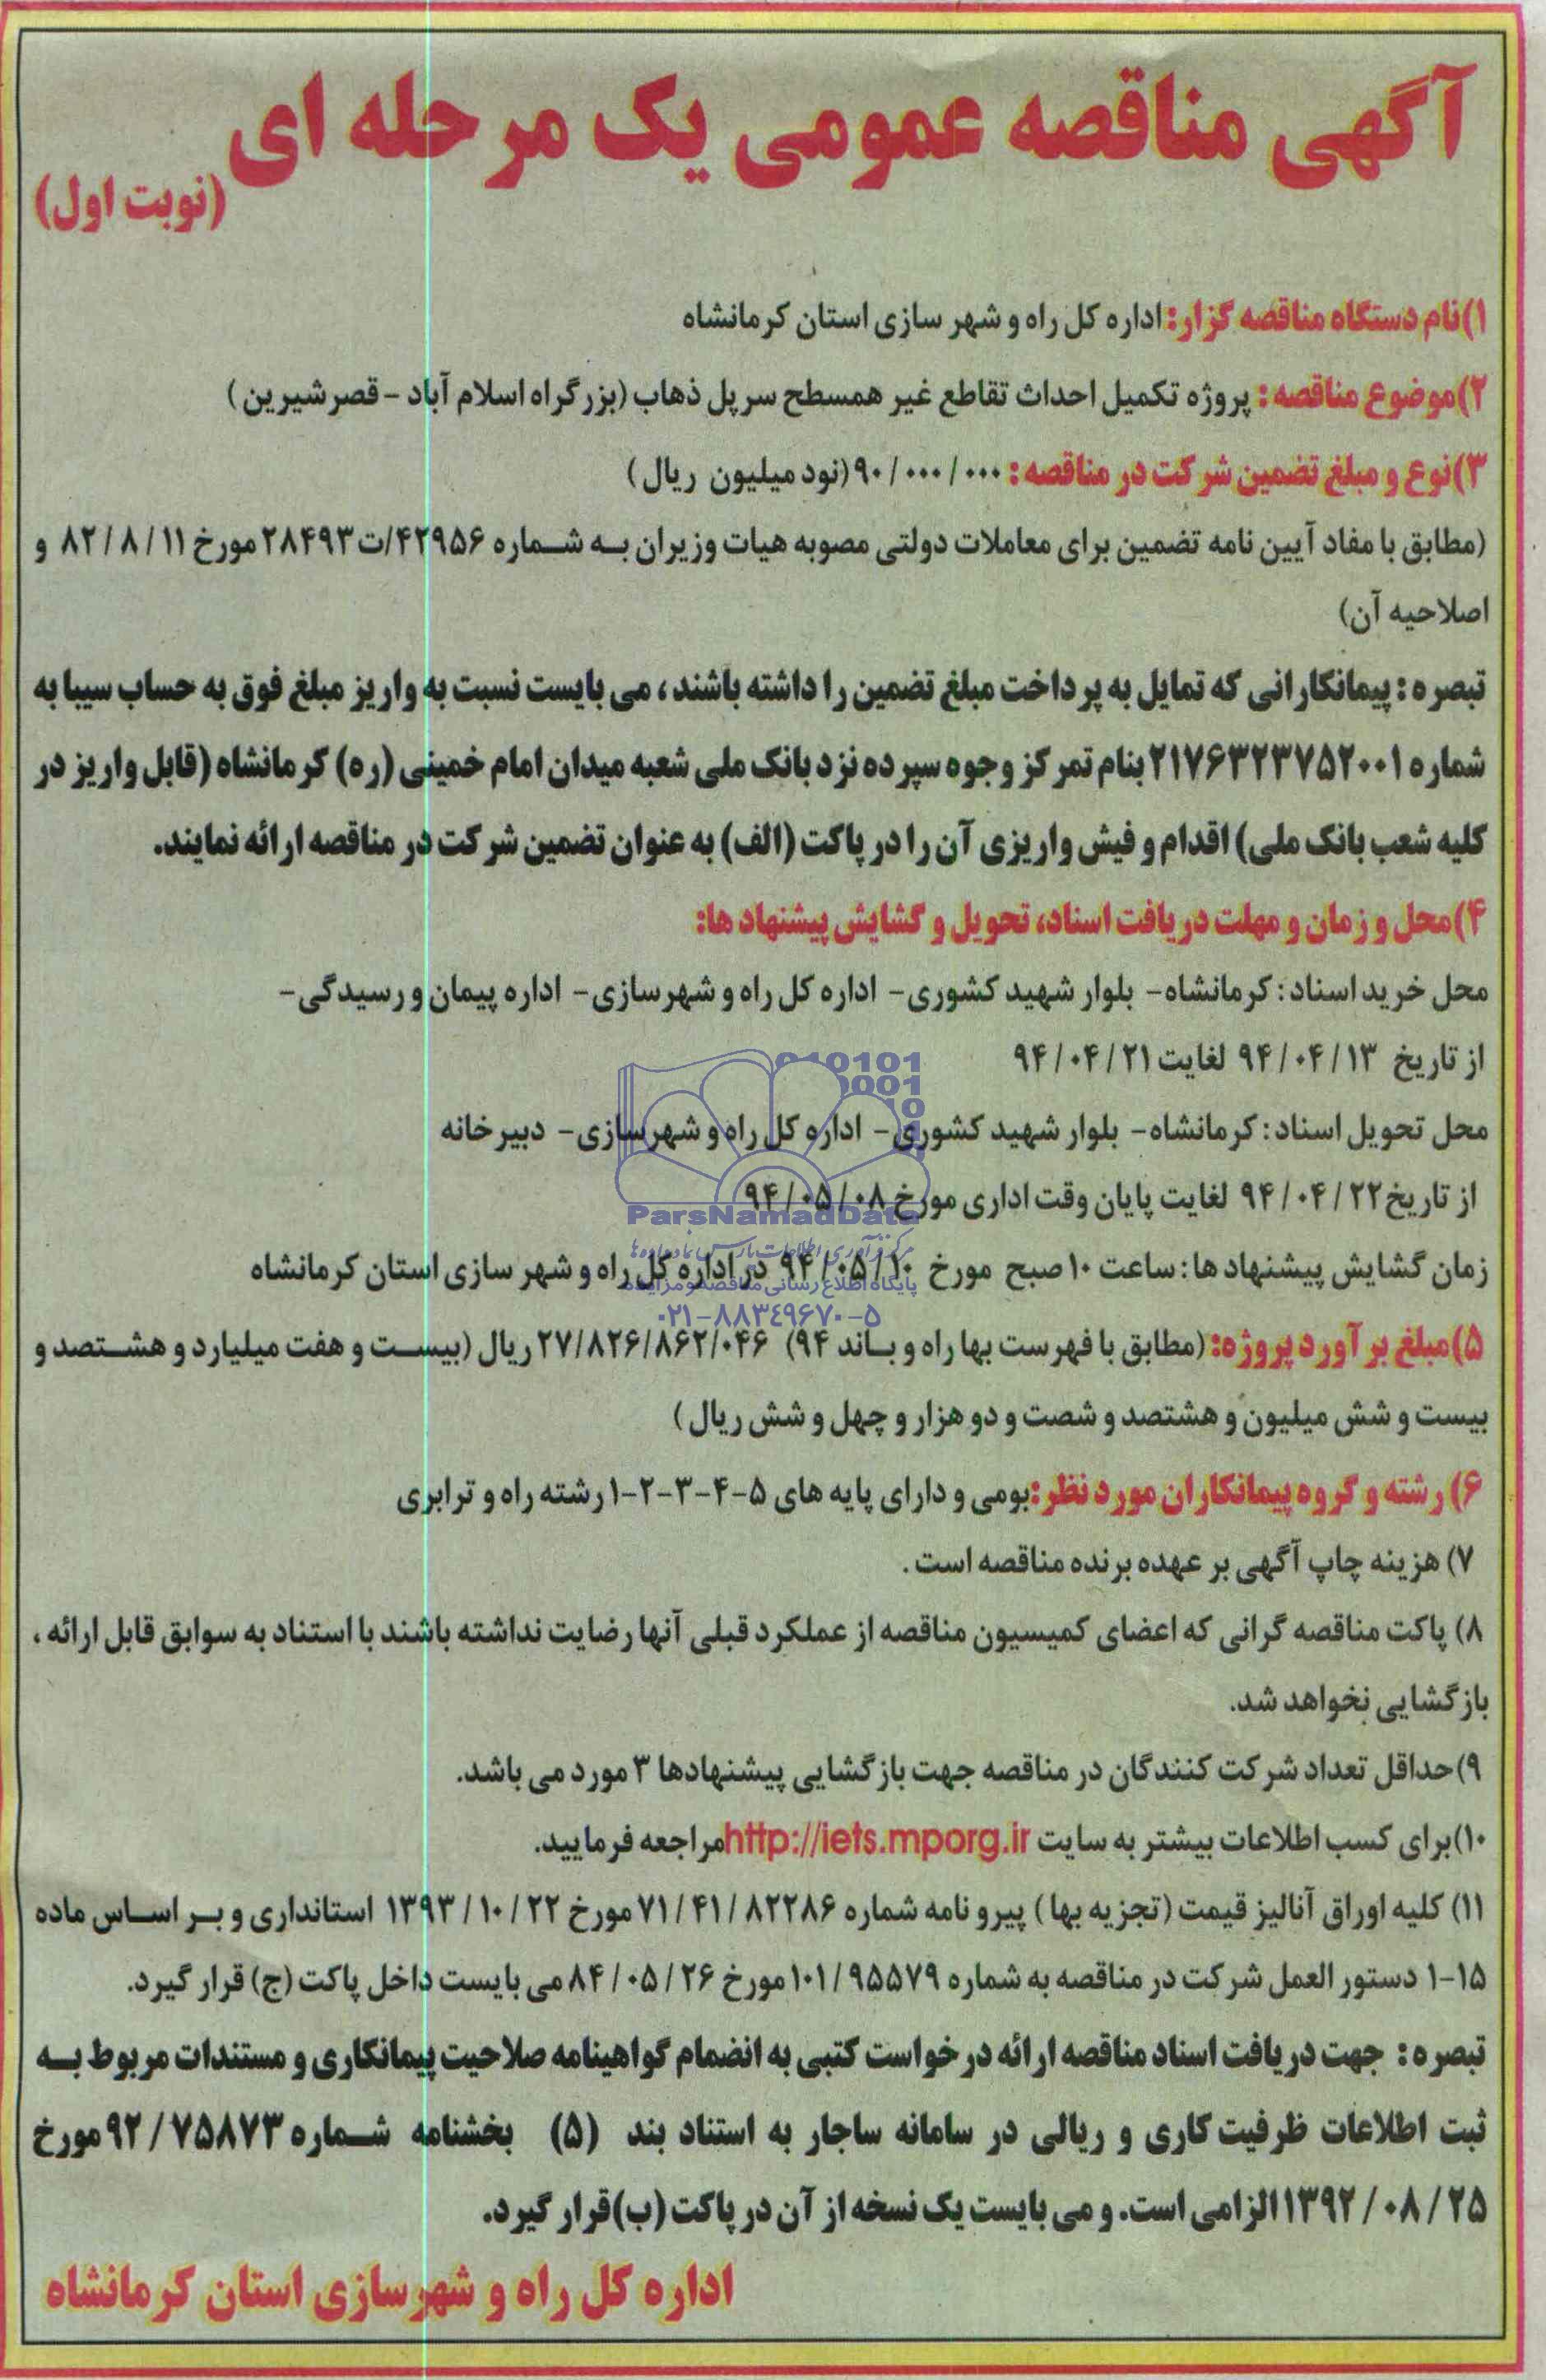 آگهی مناقصه عمومی یک مرحله ای
(نوبت اول)
۱)نام دستگاه مناقصه گزار: اداره کل راه و شهر سازی استان کرمانشاه
۲)موضوع مناقصه: پروژه تکمیل احداث تقاطع غیر همسطح سرپل ذهاب (بزرگراه اسلام آباد - قصرشیرین)
۳)نوع و مبلغ تضمین شرکت در مناقصه: ۹۰/۰۰۰/۰۰۰(نود میلیون ریال)
(مطابق با مفاد آیین نامه تضمین برای معاملات دولتی مصوبه هیات وزیران به شماره ۴۲۹۵۶/ت۲۸۴۹۳ مورخ ۸۲/۸/۱۱ و
اصلاحیه آن)
تبصره: پیمانکارانی که تمایل به پرداخت مبلغ تضمین را داشته باشند، می بایست نسبت به واریز مبلغ فوق به حساب سیبا به
شماره ۲۱۷۶۳۲۳۷۵۲۰۰۱ بنام تمرکز وجوه سپرده نزد بانک ملی شعبه میدان امام خمینی (ره) کرمانشاه (قابل واریز در
کلیه شعب بانک ملی) اقدام و فیش واریزی آن را در پاکت (الف) به عنوان تضمین شرکت در مناقصه ارائه نمایند.
۴)محل و زمان و مهلت دریافت اسناد، تحویل و گشایش پیشنهاد ها:
محل خرید اسناد: کرمانشاه- بلوار شهید کشوری- اداره کل راه و شهرسازی- اداره پیمان و رسیدگی-
از تاریخ ۹۴/۰۴/۱۳ لغایت ۹۴/۰۴/۲۱
محل تحویل اسناد: کرمانشاه- بلوار شهید کشوری- اداره کل راه و شهرسازی- دبیرخانه
از تاریخ ۹۴/۰۴/۲۲ لغایت پایان وقت اداری مورخ ۹۴/۰۵/۰۸
ParsNamadData
زمان گشایش پیشنهاد ها: ساعت ۱۰ صبح مورخ ۹۴/۰۵/۱۰ در اداره کل راه و شهر سازی استان کرمانشاه
پایگاه اطلاع رسانی مناقصه و مزایده
۰۲۱-۸۸۳۴۹۶۷۰-۵
۵)مبلغ برآورد پروژه: (مطابق با فهرست بها راه و باند ۹۴) ۲۷/۸۲۶/۸۶۲/۰۴۶ ریال (بیست و هفت میلیارد و هشتصد و
بیست و شش میلیون و هشتصد و شصت و دو هزار و چهل و شش ریال)
۶) رشته و گروه پیمانکاران مورد نظر:بومی و دارای پایه های ۵-۴-۳-۲-۱ رشته راه و ترابری
۷) هزینه چاپ آگهی بر عهده برنده مناقصه است.
۸) پاکت مناقصه گرانی که اعضای کمیسیون مناقصه از عملکرد قبلی آنها رضایت نداشته باشند با استناد به سوابق قابل ارائه،
بازگشایی نخواهد شد.
۹)حداقل تعداد شرکت کنندگان در مناقصه جهت بازگشایی پیشنهادها ۳ مورد می باشد.
۱۰)برای کسب اطلاعات بیشتر به سایت http://iets.mporg.ir مراجعه فرمایید.
۱۱) کلیه اوراق آنالیز قیمت (تجزیه بها) پیرو نامه شماره ۷۱/۴۱/۸۲۲۸۶ مورخ ۱۳۹۳/۱۰/۲۲ استانداری و بر اساس ماده
۱۵-۱ دستور العمل شرکت در مناقصه به شماره ۱۰۱/۹۵۵۷۹ مورخ ۸۴/۰۵/۲۶ می بایست داخل پاکت (ج) قرار گیرد.
تبصره: جهت دریافت اسناد مناقصه ارائه درخواست کتبی به انضمام گواهینامه صلاحیت پیمانکاری و مستندات مربوط به
ثبت اطلاعات ظرفیت کاری و ریالی در سامانه ساجار به استناد بند (۵) بخشنامه شماره ۹۲/۷۵۸۷۳ مورخ
۱۳۹۲/۰۸/۲۵ الزامی است. و می بایست یک نسخه از آن در پاکت (ب)قرار گیرد.
اداره کل راه و شهرسازی استان کرمانشاه